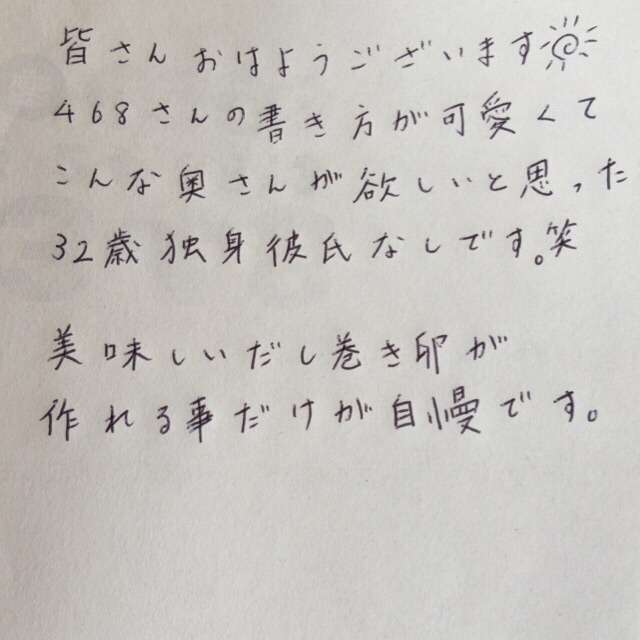 皆さんおはようございます
468さんの書き方が可愛くて
こんな奥さんが欲しいと思った
32歳独身彼氏なしです。笑
美味しいだし巻き卵が
作れる事だけが自慢です。